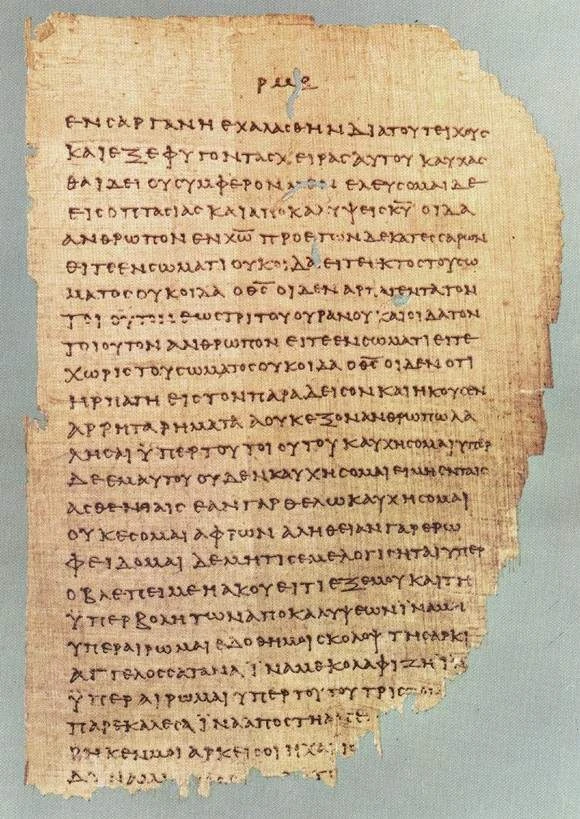 ρμε
ΕΝ ΣΑΡΓΑΝΗ ΕΧΑΛΑΣΘΗΝ ΔΙΑ ΤΟΥ ΤΕΙΧΟΥΣ
ΚΑΙ ΕΞΕΦΥΓΟΝ ΤΑΣ ΧΕΙΡΑΣ ΑΥΤΟΥ ΚΑΥΧΑΣ
ΘΑΙ ΔΕΙ ΟΥ ΣΥΜΦΕΡΟΝ ΕΛΕΥΣΟΜΑΙ ΔΕ
ΕΙΣ ΟΠΤΑΣΙΑΣ ΚΑΙ ΑΠΟΚΑΛΥΨΕΙΣ Κ̅Υ̅ ΟΙΔΑ
ΑΝΘΡΩΠΟΝ ΕΝ Χ̅Ω̅ ΠΡΟ ΕΤΩΝ ΔΕΚΑΤΕΣΣΑΡΩΝ
ΕΙΤΕ ΕΝ ΣΩΜΑΤΙ ΟΥΚ ΟΙΔΑ ΕΙΤΕ ΕΚΤΟΣ ΤΟΥ ΣΩ
ΜΑΤΟΣ ΟΥΚ ΟΙΔΑ Ο Θ̅Σ̅ ΟΙΔΕΝ ΑΡΠΑΓΕΝΤΑ ΤΟΝ
ΤΟΙΟΥΤΟΝ ΕΩΣ ΤΡΙΤΟΥ ΟΥΡΑΝΟΥ ΚΑΙ ΟΙΔΑ ΤΟΝ
ΤΟΙΟΥΤΟΝ ΑΝΘΡΩΠΟΝ ΕΙΤΕ ΕΝ ΣΩΜΑΤΙ ΕΙΤΕ
ΧΩΡΙΣ ΤΟΥ ΣΩΜΑΤΟΣ ΟΥΚ ΟΙΔΑ Ο Θ̅Σ̅ ΟΙΔΕΝ ΟΤΙ
ΗΡΠΑΓΗ ΕΙΣ ΤΟΝ ΠΑΡΑΔΕΙΣΟΝ ΚΑΙ ΗΚΟΥΣΕΝ
ΑΡΡΗΤΑ ΡΗΜΑΤΑ Α ΟΥΚ ΕΞΟΝ ΑΝΘΡΩΠΩ ΛΑ
ΛΗΣΑΙ ΫΠΕΡ ΤΟΥ ΤΟΙΟΥΤΟΥ ΚΑΥΧΗΣΟΜΑΙ ΥΠΕΡ
ΔΕ ΕΜΑΥΤΟΥ ΟΥΔΕΝ ΚΑΥΧΗΣΟΜΑΙ ΕΙ ΜΗ ΕΝ ΤΑΙΣ
ΑΣΘΕΝΙΑΙΣ ΕΑΝ ΓΑΡ ΘΕΛΩ ΚΑΥΧΗΣΟΜΑΙ
ΟΥΚ ΕΣΟΜΑΙ ΑΦΡΩΝ ΑΛΗΘΕΙΑΝ ΓΑΡ ΕΡΩ
ΦΕΙΔΟΜΑΙ ΔΕ ΜΗ ΤΙΣ ΕΜΕ ΛΟΓΙΣΗΤΑΙ ΥΠΕΡ
Ο ΒΛΕΠΕΙ ΜΕ Η ΑΚΟΥΕΙ ΤΙ ΕΞ ΕΜΟΥ ΚΑΙ ΤΗ
ΫΠΕΡΒΟΛΗ ΤΩΝ ΑΠΟΚΑΛΥΨΕΩΝ ΪΝΑ ΜΗ
ΥΠΕΡΑΙΡΩΜΑΙ ΕΔΟΘΗ ΜΟΙ ΣΚΟΛΟΨ ΤΗ ΣΑΡΚΙ
ΑΓΓΕΛΟΣ ΣΑΤΑΝΑ ΪΝΑ ΜΕ ΚΟΛΑΦΙΖΗ ΪΝΑ
ΫΠΕΡΑΙΡΩΜΑΙ ΥΠΕΡ ΤΟΥΤΟΥ ΤΡΙΣ
ΠΑΡΕΚΑΛΕΣΑ ΪΝΑ ΑΠΟΣΤΗ Α
ΡΗΚΕΝ ΜΟΙ ΑΡΚΕΙ ΣΟΙ Η ΧΑΡΙΣ
ΔΥΝΑΜ